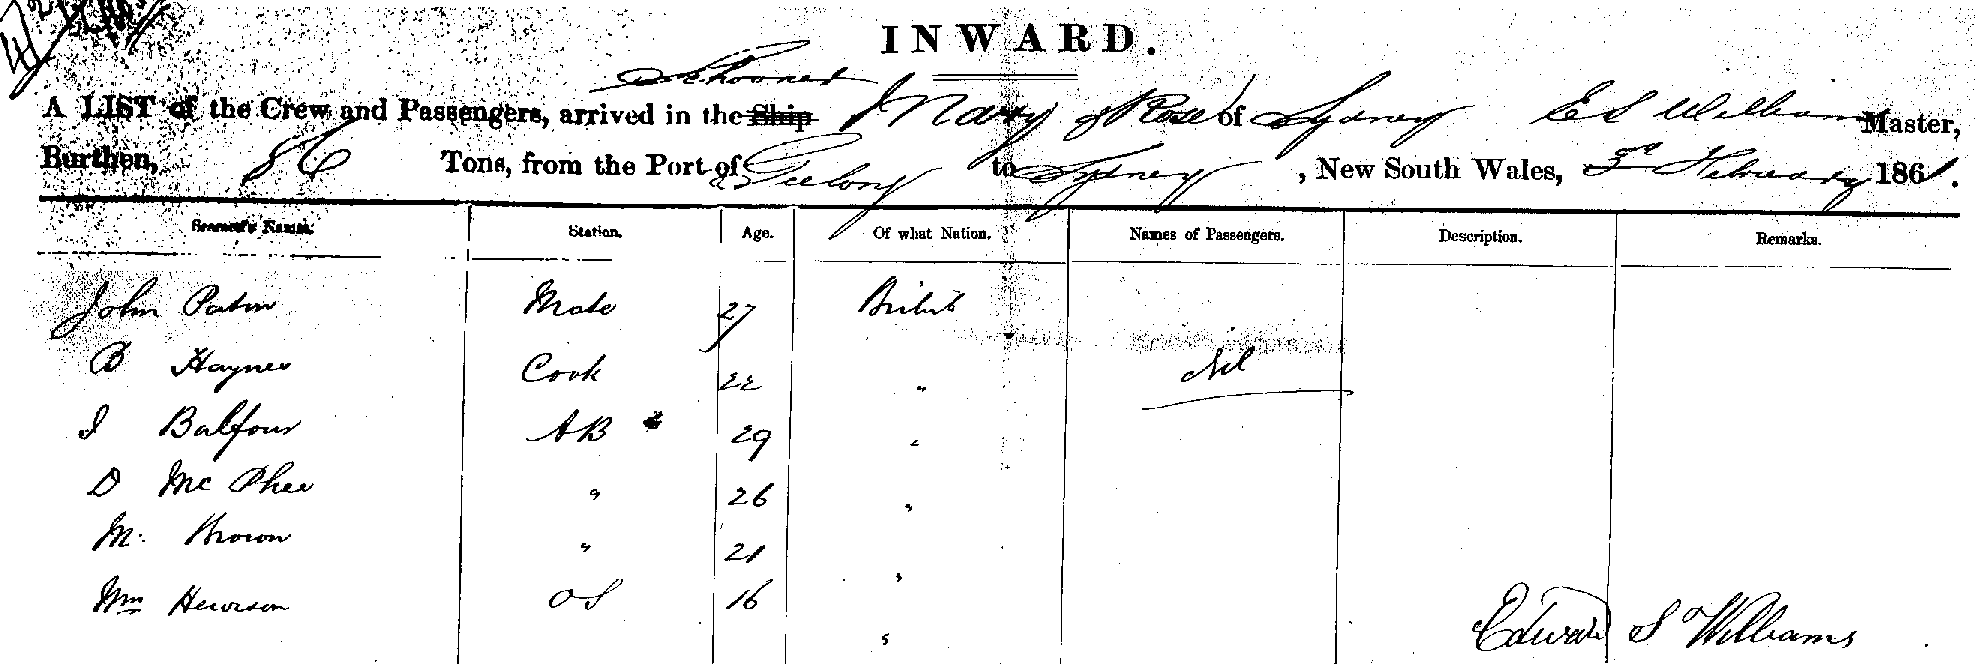 INWARD.
Schooner
A LIST of the Crew and Passengers, arrived in the Ship Mary & Rose of Sydney E S Williams Master,
Burthen, 86 Tons, from the Port of Geelong to Sydney, New South Wales, 3rd February 1861.
Seamen's Names. Station. Age. Of what Nation. Names of Passengers. Description. Remarks.
John Paton Mate 27 British
B Haynes Cook 22 " Nil
J Balfour AB 29 "
D McPhee " 26 "
M. Brown " 21 "
Wm Hewison OS 16 "
Edward S Williams